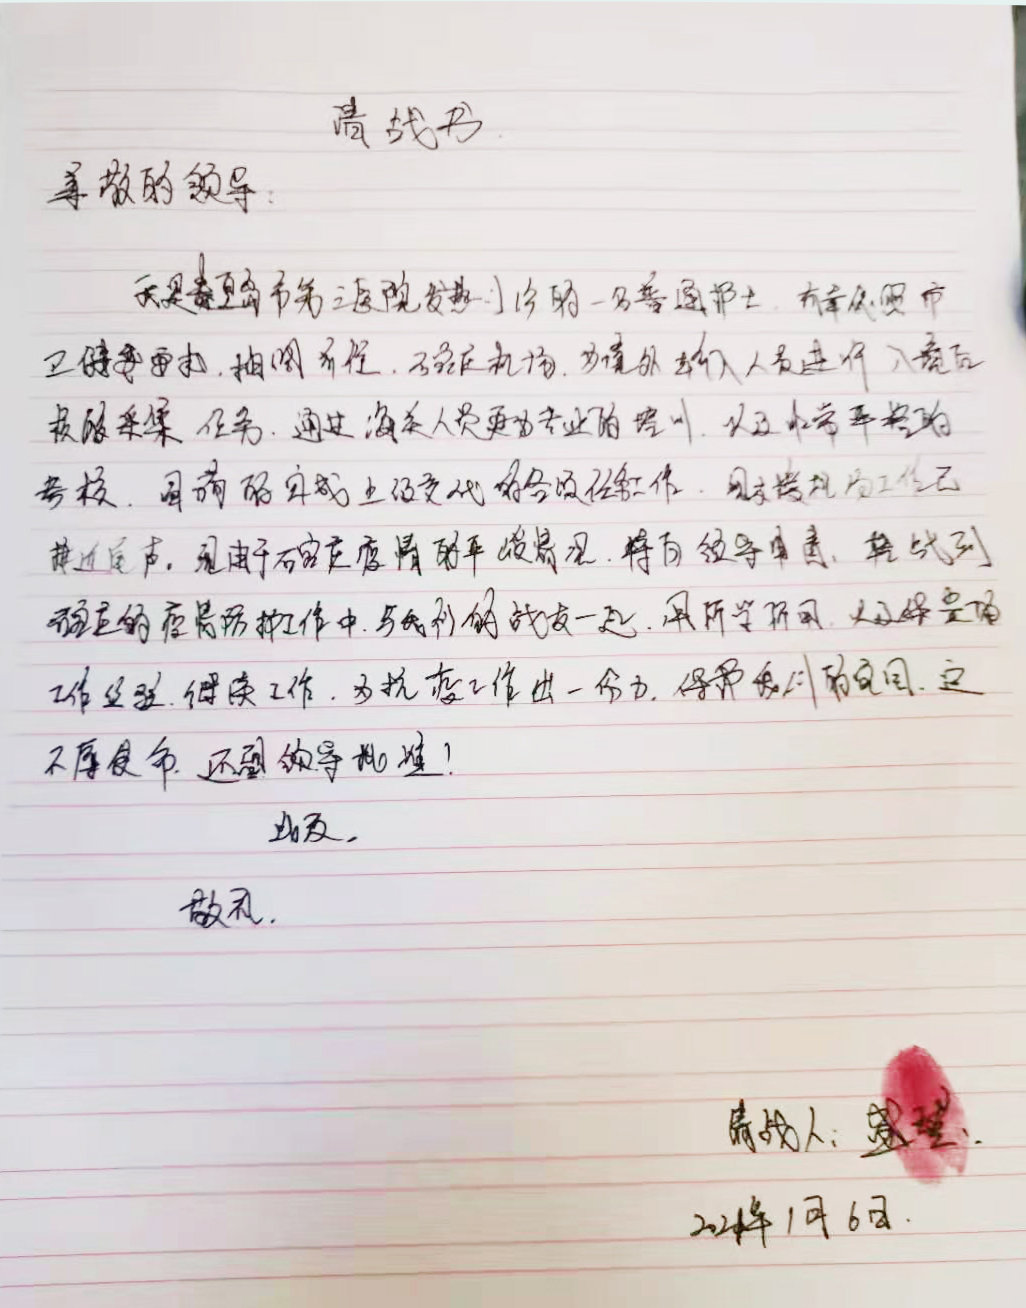 请战书.
尊敬的领导:
我是秦皇岛市第三医院发热门诊的一名普通护士.有幸成为市
卫健委要求,抽调前往.石家庄机场.为境外出入人员进行入境后
核酸采集任务.通过海关人员更为专业的培训.以及非常严格的
考核.目前的完成上级交代的各项任务工作.机场工作已
接近尾声。现由于石家庄疫情的严峻情况.特向领导申请、转战到
石家庄的疫情防护工作中.与我们的战友一起.用所学所用.以及
工作经验.继续工作.为抗疫工作出一份力.保卫我们的家园.定
不辱使命.还望领导批准!
此致.
敬礼.
请战人:
2021年1月6日.